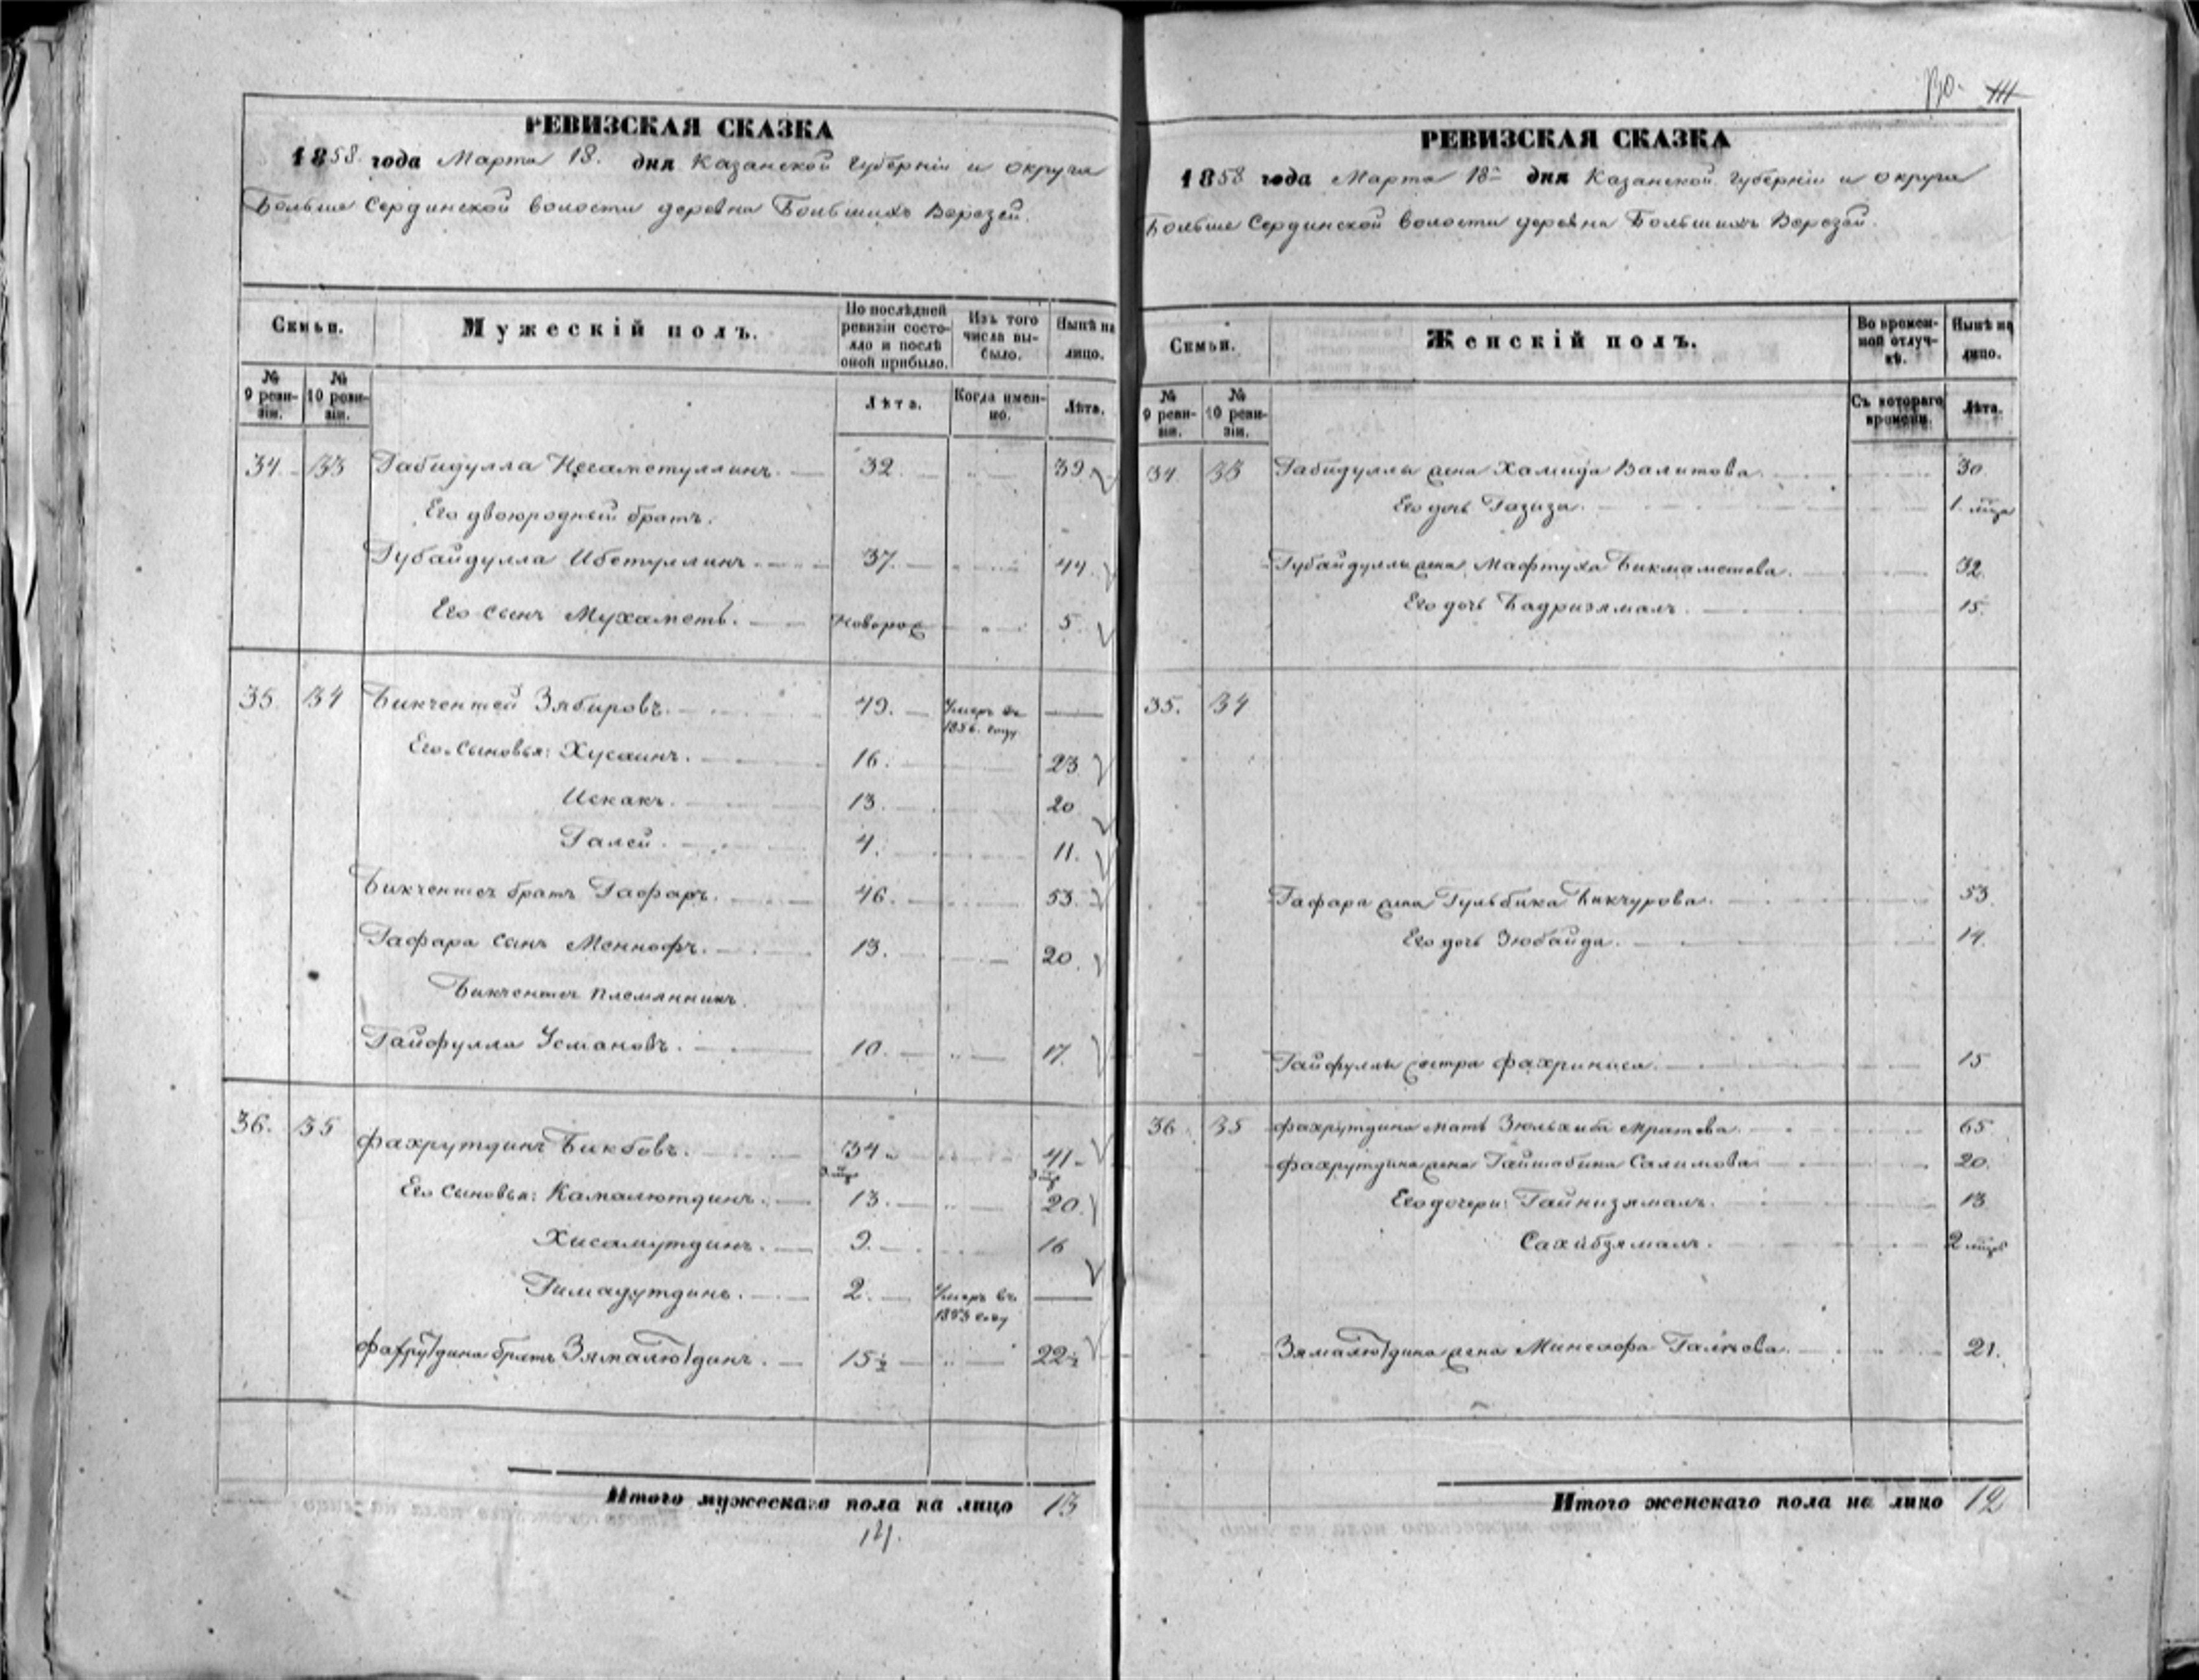 РЕВИЗСКАЯ СКАЗКА
1858. года Марта 18. дня Казанской Губерніи и округа
Больше Сердинской волости деревни Большихъ Верезей.
Семьи.
Мужескій полъ.
По послѣдней ревизіи состояло и послѣ оной прибыло.
Изъ того числа выбыло.
Нынѣ на лицо.
№ 9 ревизіи.
№ 10 ревизіи.
Лѣта.
Когда именно.
Лѣта.
34 33 Габидулла Несаметуллинъ. 32. 39
Его двоюродный братъ.
Губайдулла Ибетуллинъ. 37. 44.
Его сынъ Мухаметь. Новорож 5.
35. 34 Бикчентей Зябировъ. 49. Умеръ въ 1856. году
Его сыновья: Хусаинъ. 16. 23.
Искакъ. 13. 20
Галей. 4. 11.
Бикчентея братъ Гафаръ. 46. 53.
Гафара сынъ Меннофъ. 13. 20.
Бикчентея племянникъ.
Гайфулла Усмановъ. 10. 17.
36. 35 Фахрутдинъ Бикбовъ. 34 41
Его сыновья: Камалютдинъ. 13. 20.
Хисамутдинъ. 9. 16
Гимадутдинъ. 2. Умеръ въ 1853 году
Фахрутдина братъ Зямалютдинъ. 15½ 22½
Итого мужескаго пола на лицо 13
14.
130. 111
РЕВИЗСКАЯ СКАЗКА
1858 года Марта 18 дня Казанской Губерніи и округа
Больше Сердинской волости деревни Большихъ Верезей.
Семьи.
Женскій полъ.
Во временной отлучкѣ.
Нынѣ на лицо.
№ 9 ревизіи.
№ 10 ревизіи.
Съ котораго времени.
Лѣта.
34 33 Габидуллы жена Хамида Валитова. 30.
Его дочь Газиза. 1.
Губайдуллы жена Мафтуха Бикмаметова. 32.
Его дочь Бадризямалъ. 15.
35. 34
Гафара жена Гульбика Бикчурова. 53.
Его дочь Зюбайда. 14.
Гайфуллы сестра Фахриниса. 15
36 35 Фахрутдина мать Зюльхиба Мратова. 65
Фахрутдина жена Гаишабика Салимова 20.
Его дочери: Гайнизямалъ. 13
Сахибзямалъ. 2
Зямалютдина жена Минсафа Галиева. 21.
Итого женскаго пола на лицо 12